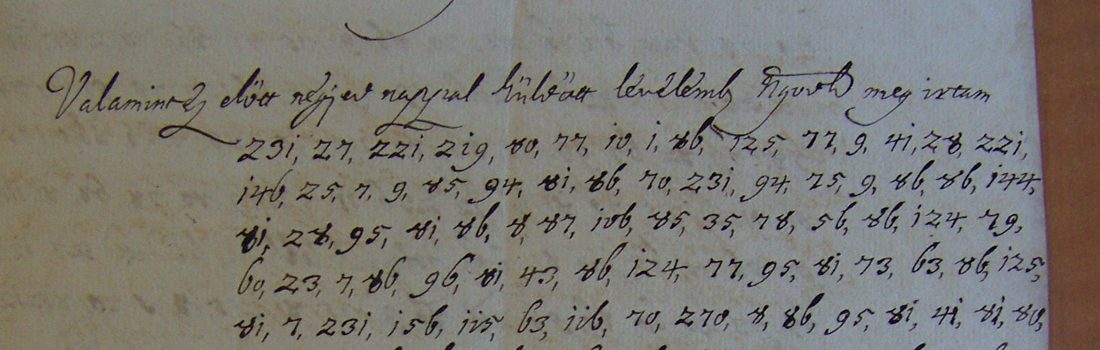 Valamint ez előtt négÿed nappal küldött levélemb[...] megirtam
231, 27, 221, 219, 80, 77, 10, 1, 86, 125, 77, 9, 41, 28, 221,
146, 25, 7, 9, 85, 94, 81, 86, 70, 231, 94, 75, 9, 86, 86, 144,
81, 28, 95, 81, 86, 8, 87, 106, 85, 35, 78, 56, 86, 124, 79,
60, 23, 7, 86, 96, 81, 43, 86, 124, 77, 95, 81, 73, 63, 86, 125,
81, 7, 231, 156, 115, 63, 116, 70, 270, 8, 86, 95, 81, 41, 81, 80,